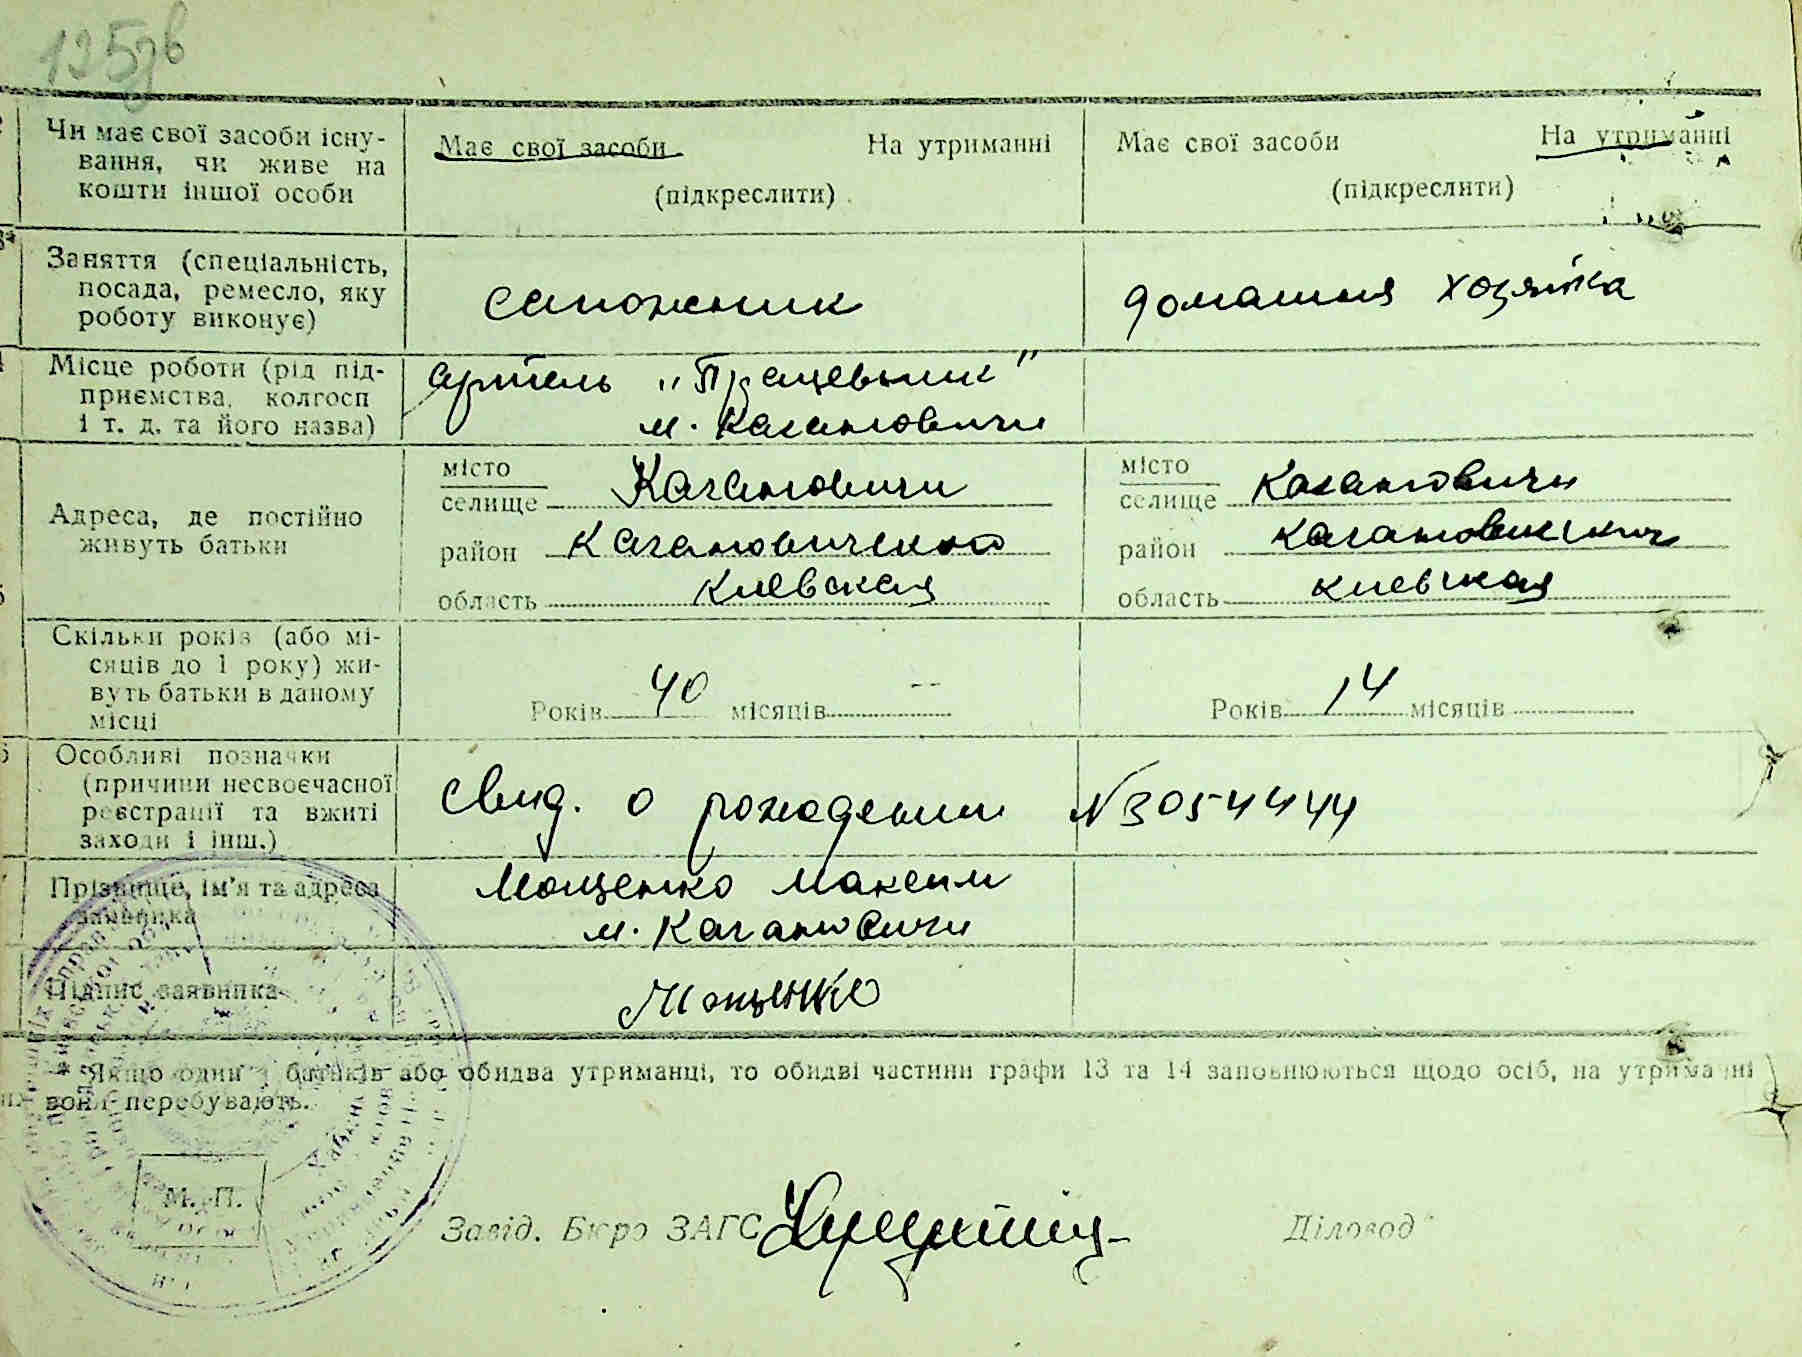 125зв
Чи має свої засоби існу-
вання, чи живе на
кошти іншої особи
Має свої засоби На утриманні
(підкреслити)
Має свої засоби На утриманні
(підкреслити)
Заняття (спеціальність,
посада, ремесло, яку
роботу виконує)
сапожник
домашня хозяйка
Місце роботи (рід під-
приємства, колгосп
і т. д. та його назва)
артель „Працевник"
м. Кагановичи
Адреса, де постійно
живуть батьки
місто
селище Кагановичи
район Кагановичский
область Киевская
місто
селище Кагановичи
район
область Киевская
Скільки років (або мі-
сяців до 1 року) жи-
вуть батьки в даному
місці
Років 40 місяців --
Років 14 місяців
Особливі позначки
(причини несвоєчасної
реєстрації та вжиті
заходи і інш.)
Свид. о рождении №3054444
Прізвище, ім'я та адреса
заявника
Мощенко Максим
м. Кагановичи
Підпис заявника
Мощенко
* Якщо один з батьків або обидва утриманці, то обидві частини графи 13 та 14 заповнюються щодо осіб, на утриманні
вони перебувають.
М. П.
Завід. Бюро ЗАГС
Діловод